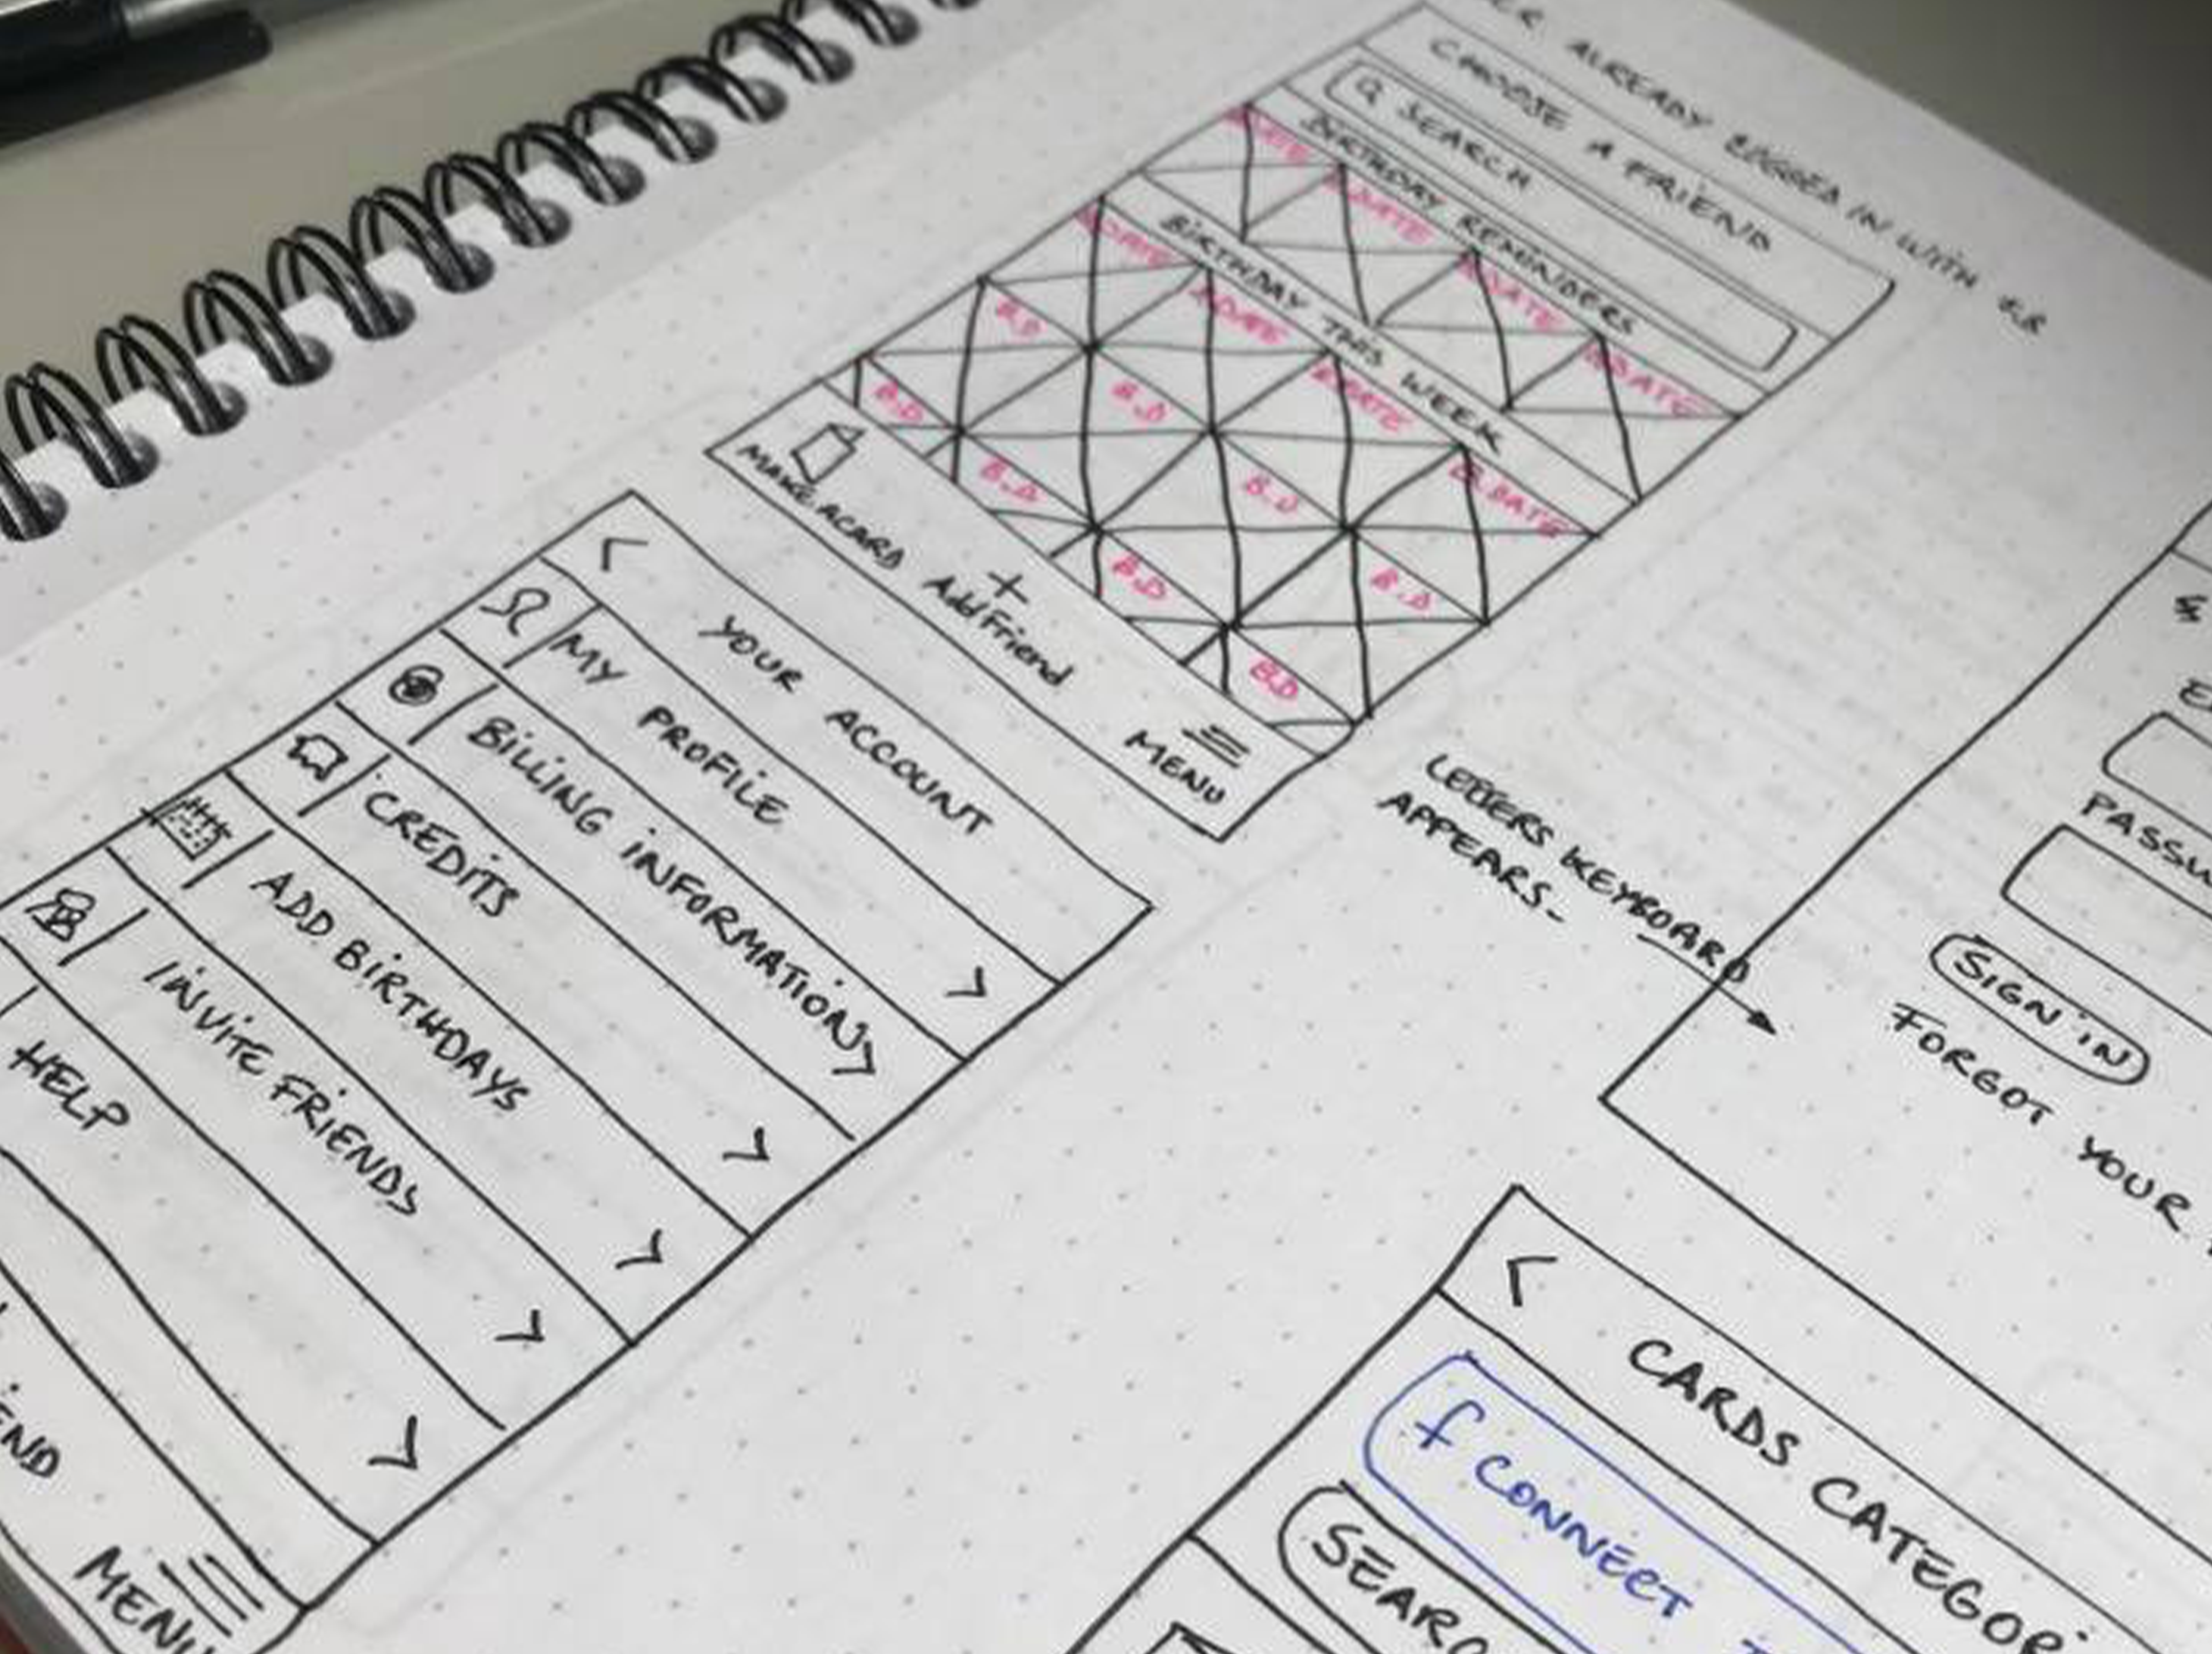 ALREADY LOGGED IN WITH F.B
CHOOSE A FRIEND
SEARCH
BIRTHDAY REMINDERS
B.DATE
B.DATE
B.DATE
BIRTHDAY THIS WEEK
B.DATE
B.DATE
B.DATE
B.DATE
B.D
B.D
B.D
B.D
B.D
B.D
B.D
B.D
MAKE A CARD
+
Add Friend
MENU
< YOUR ACCOUNT
MY PROFILE >
BILLING INFORMATION >
CREDITS >
ADD BIRTHDAYS >
INVITE FRIENDS >
HELP
MENU
LETTERS KEYBOARD
APPEARS-
SIGN IN
FORGOT YOUR
< CARDS CATEGORI
f CONNECT